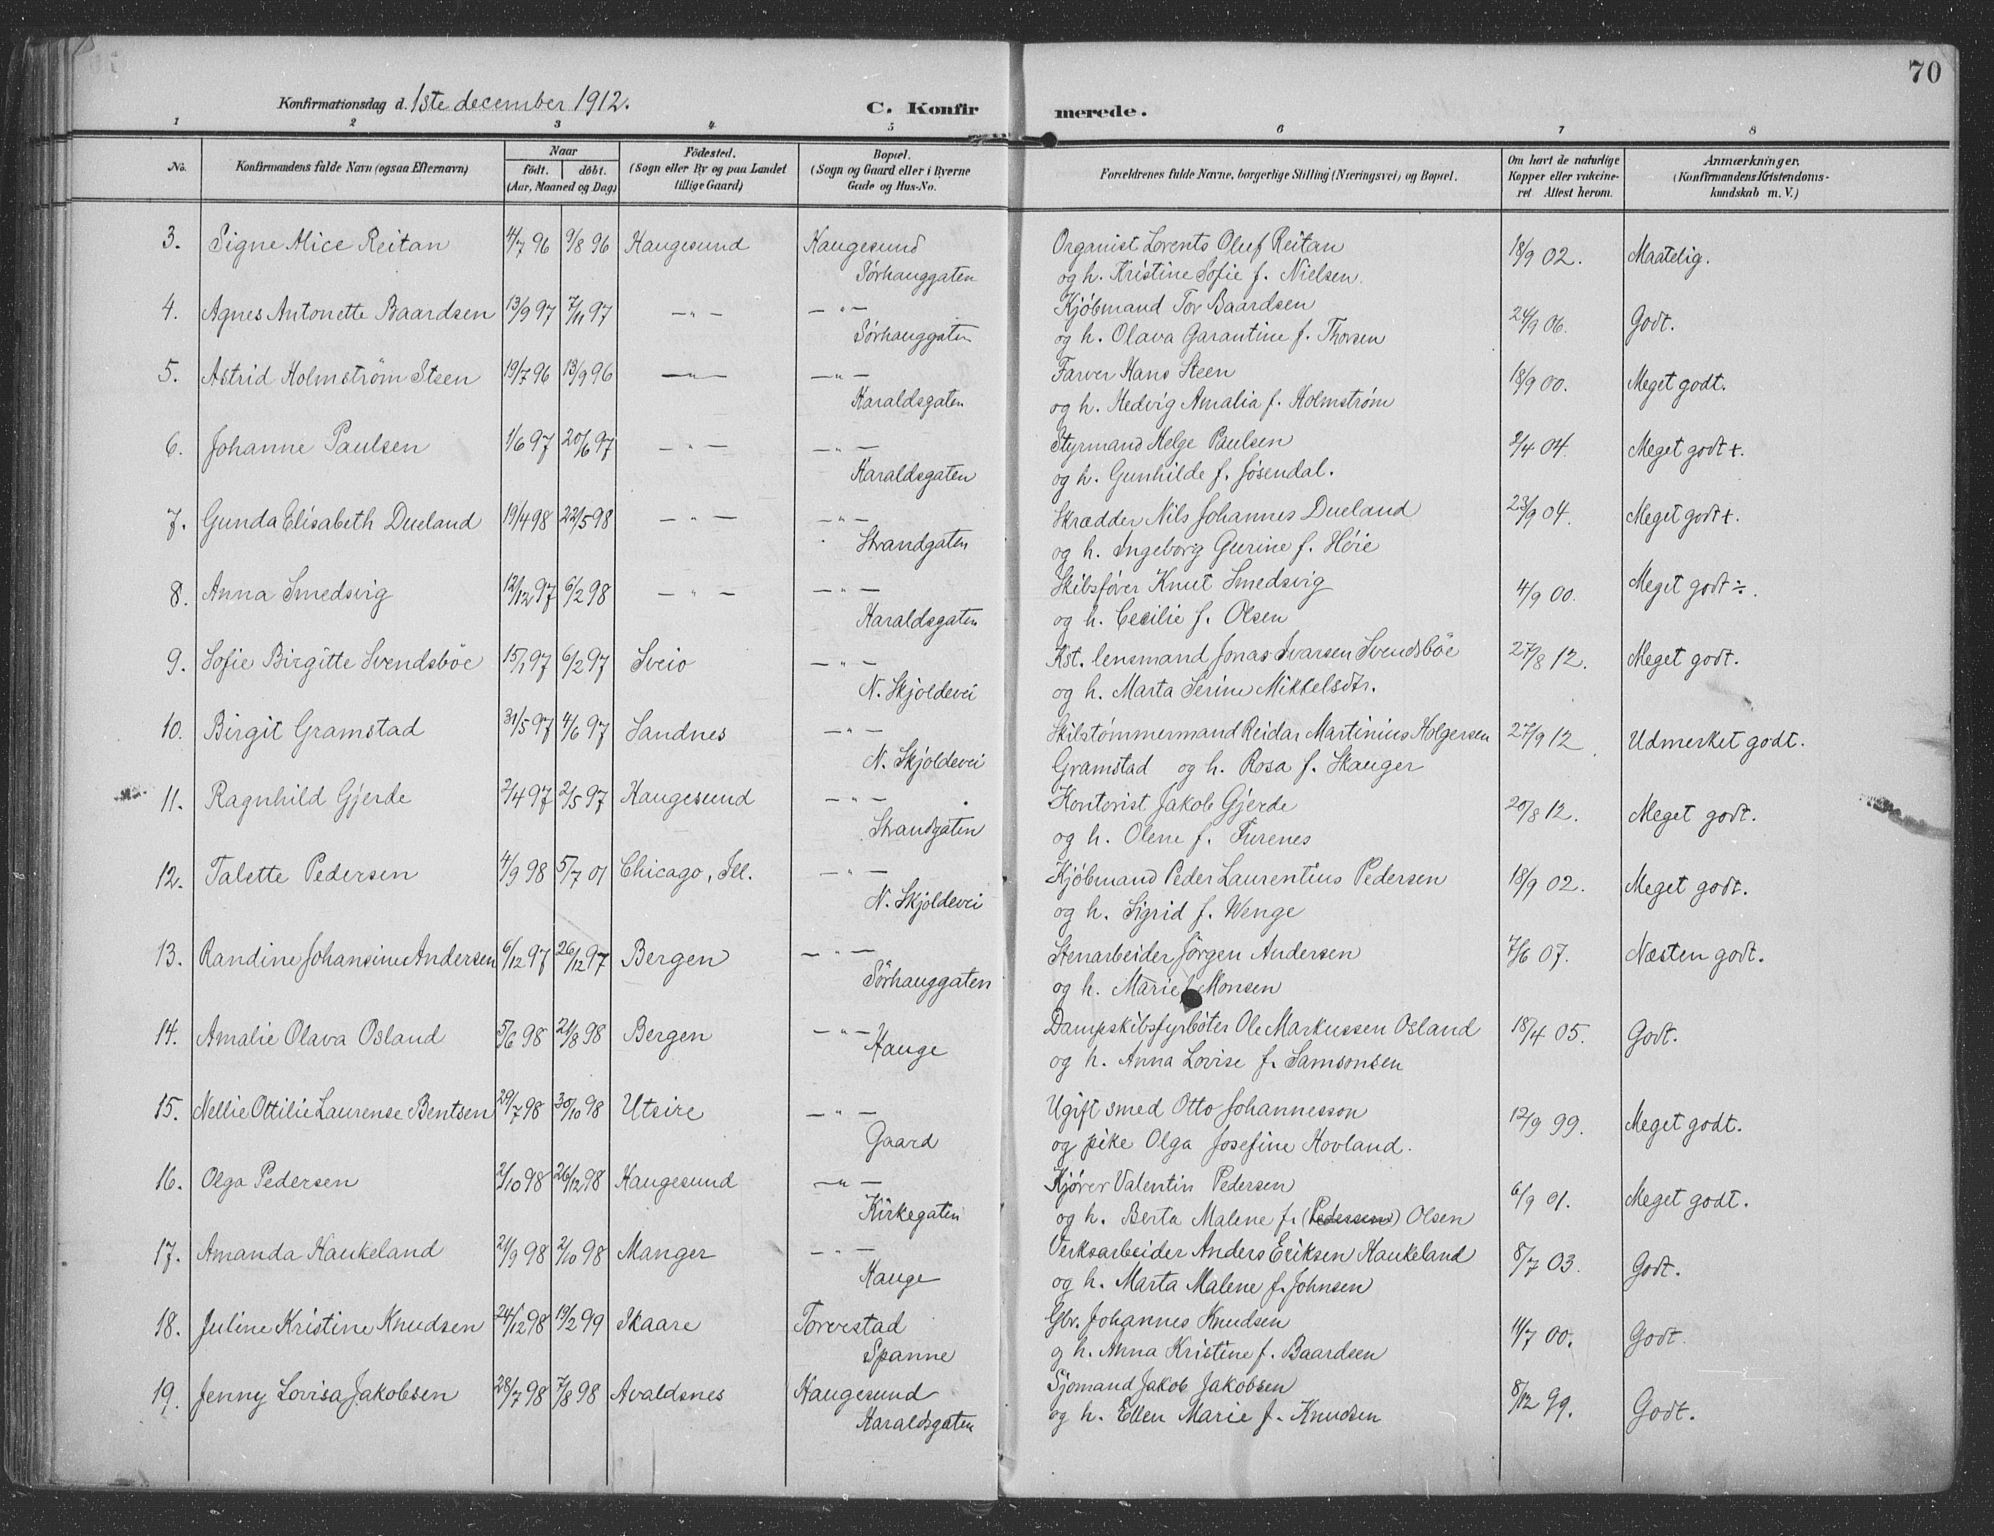 70
Konfirmationsdag d. 1ste december 1912.
C. Konfirmerede.
1 2 3 4 5 6 7 8
No. Konfirmandens fulde Navn (ogsaa Efternavn) Naar födt. döbt. (Aar, Maaned og Dag) Födested. (Sogn eller By og paa Landet tillige Gaard) Bopæl. (Sogn og Gaard eller i Byerne Gade og Hus-No. Forældrenes fulde Navne, borgerlige Stilling (Næringsvei) og Bopæl. Om havt de naturlige Kopper eller vakcineret Attest herom. Anmærkninger. (Konfirmandens Kristendomskundskab m. V.)
3. Signe Alice Reitan 4/7 96 9/8 96 Haugesund Haugesund Organist Lorents Oluf Reitan 18/9 02. Maatelig.
Sørhauggaten og h. Kristine Sofie f. Nielsen.
4. Agnes Antonette Baardsen 13/9 97 7/11 97 — " — — " — Kjöbmand Tor Baardsen 24/9 06. Godt.
Sørhauggaten og h. Olava Garantine f. Thorsen
5. Astrid Holmström Steen 19/7 96 13/9 96 — " — — " — Farver Hans Steen 18/9 00. Meget godt.
Haraldsgaten og h. Hedvig Amalia f. Holmstrøm
6. Johanne Paulsen 1/6 97 20/6 97 — " — — " — Styrmand Helge Paulsen 2/4 04. Meget godt +.
Haraldsgaten og h. Gunhilde f. Jøsendal.
7. Gunda Elisabeth Dueland 19/4 98 22/5 98 — " — — " — Skrædder Nils Johannes Dueland 23/9 04. Meget godt +.
Strandgaten og h. Ingeborg Gurine f. Høie
8. Anna Smedsvig 12/12 97 6/2 98 — " — — " — Skibsfører Knut Smedsvig 4/9 00. Meget godt ÷.
Haraldsgaten og h. Cecilie f. Olsen
9. Sofie Birgitte Svendsböe 15/1 97 6/2 97 Sveio — " — Kst. lensmand Jonas Ivarsen Svendsböe 27/8 12. Meget godt.
N. Skjoldevei og h. Marta Serine Mikkelsdtr.
10. Birgit Gramstad 31/5 97 4/6 97 Sandnes — " — Skibstømmermand Reidar Martinius Holgersen 27/9 12. Udmerket godt.
N. Skjoldevei Gramstad og h. Rosa f. Skauger
11. Ragnhild Gjerde 2/4 97 2/5 97 Haugesund — " — Kontorist Jakob Gjerde 20/8 12. Meget godt.
Strandgaten og h. Olene f. Furenes
12. Talette Pedersen 4/9 98 5/7 01 Chicago, Ill. — " — Kjöbmand Peder Laurentius Pedersen 18/9 02. Meget godt.
N. Skjoldevei og h. Sigrid f. Wenge
13. Randine Johansine Andersen 6/12 97 26/12 97 Bergen — " — Stenarbeider Jörgen Andersen 7/6 07. Næsten godt.
Sørhauggaten og h. Marie f. Monsen
14. Amalie Olava Osland 5/6 98 21/8 98 Bergen — " — Dampskibsfyrbøter Ole Markussen Osland 18/4 05. Godt.
Hauge og h. Anna Lovise f. Samsonsen
15. Nellie Ottilie Laurense Bentsen 29/7 98 30/10 98 Utsire — " — Ugift smed Otto Johannesson 12/9 99. Meget godt.
Gaard og pike Olga Josefine Hovland.
16. Olga Pedersen 2/10 98 26/12 98 Haugesund — " — Kjører Valentin Pedersen 6/9 01. Meget godt.
Kirkegaten og h. Berta Malene f. (Pedersen) Olsen
17. Amanda Haukeland 21/9 98 2/10 98 Manger — " — Verksarbeider Anders Eriksen Haukeland 8/7 03. Godt.
Hauge og h. Marta Malene f. Johnsen
18. Juline Kristine Knudsen 24/12 98 19/2 99 Skaare Torvestad Gbr. Johannes Knudsen 11/7 00. Godt
Spanne g h. Anna Kristine f. Baardsen
19. Jenny Lovisa Jakobsen 28/7 98 7/8 98 Avaldsnes Haugesund Sjømand Jakob Jakobsen 8/12 99. Godt.
Haraldsgaten og h. Ellen Marie f. Knudsen